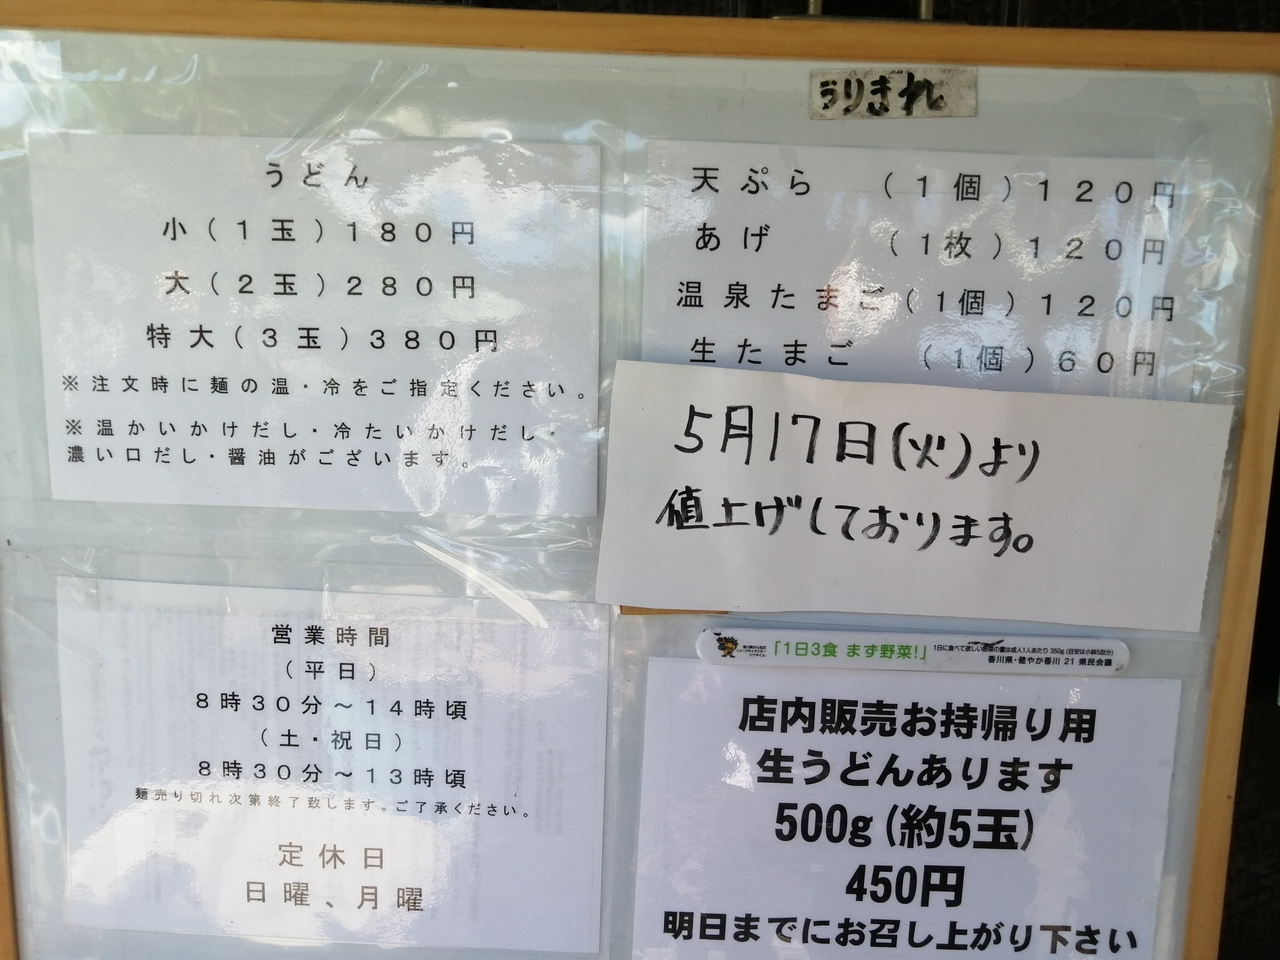 うりきれ
うどん
小(1玉)180円
大(2玉)280円
特大(3玉)380円
※注文時に麺の温・冷をご指定ください。
※温かいかけだし・冷たいかけだし・
濃い口だし・醤油がございます。
天ぷら (1個)120円
あげ (1枚)120円
温泉たまご(1個)120円
生たまご (1個)60円
5月17日(火)より
値上げしております。
営業時間
(平日)
8時30分~14時頃
(土・祝日)
8時30分~13時頃
麺売り切れ次第終了致します。ご了承ください。
定休日
日曜、月曜
「1日3食 まず野菜!」
1日に食べて欲しい野菜の量は成人1人あたり 350g (目安は小鉢5皿分)
香川県・健やか香川 21 県民会議
店内販売お持帰り用
生うどんあります
500g(約5玉)
450円
明日までにお召し上がり下さい